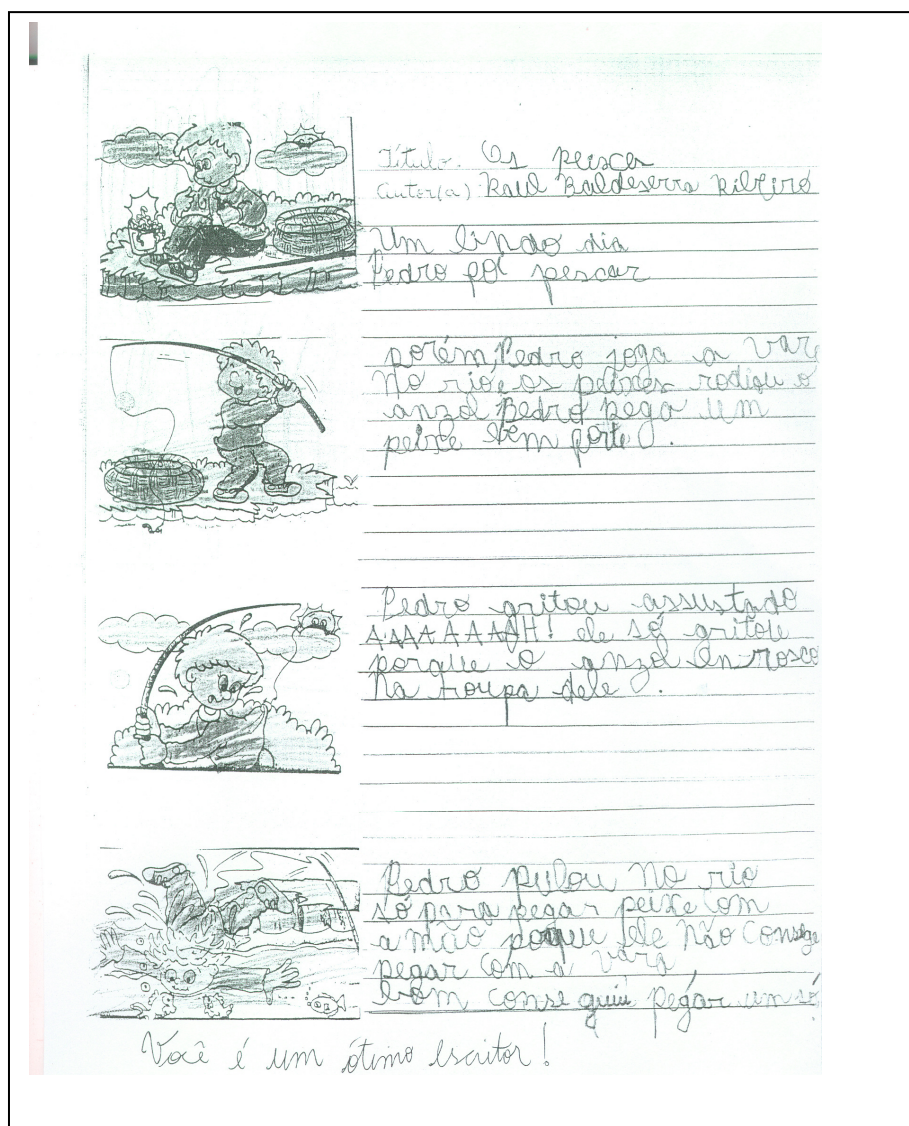 Título. Os peisces
Autor(a) Raul Baldeserra Ribeiro
Um lindo dia
Pedro foi pescar
porém, Pedro joga a vara
no rio e os peixes rodiou o
anzol pedro pega um
peixe bem forte.
Pedro gritou assustado
AAAAAAAH! ele só gritou
porque o anzol enrosco
na roupa dele.
Pedro pulou no rio
só para pegar peixe com
a mão porque ele não consege
pegar com a vara
bom conseguiu pegar um só
Você é um ótimo escritor!